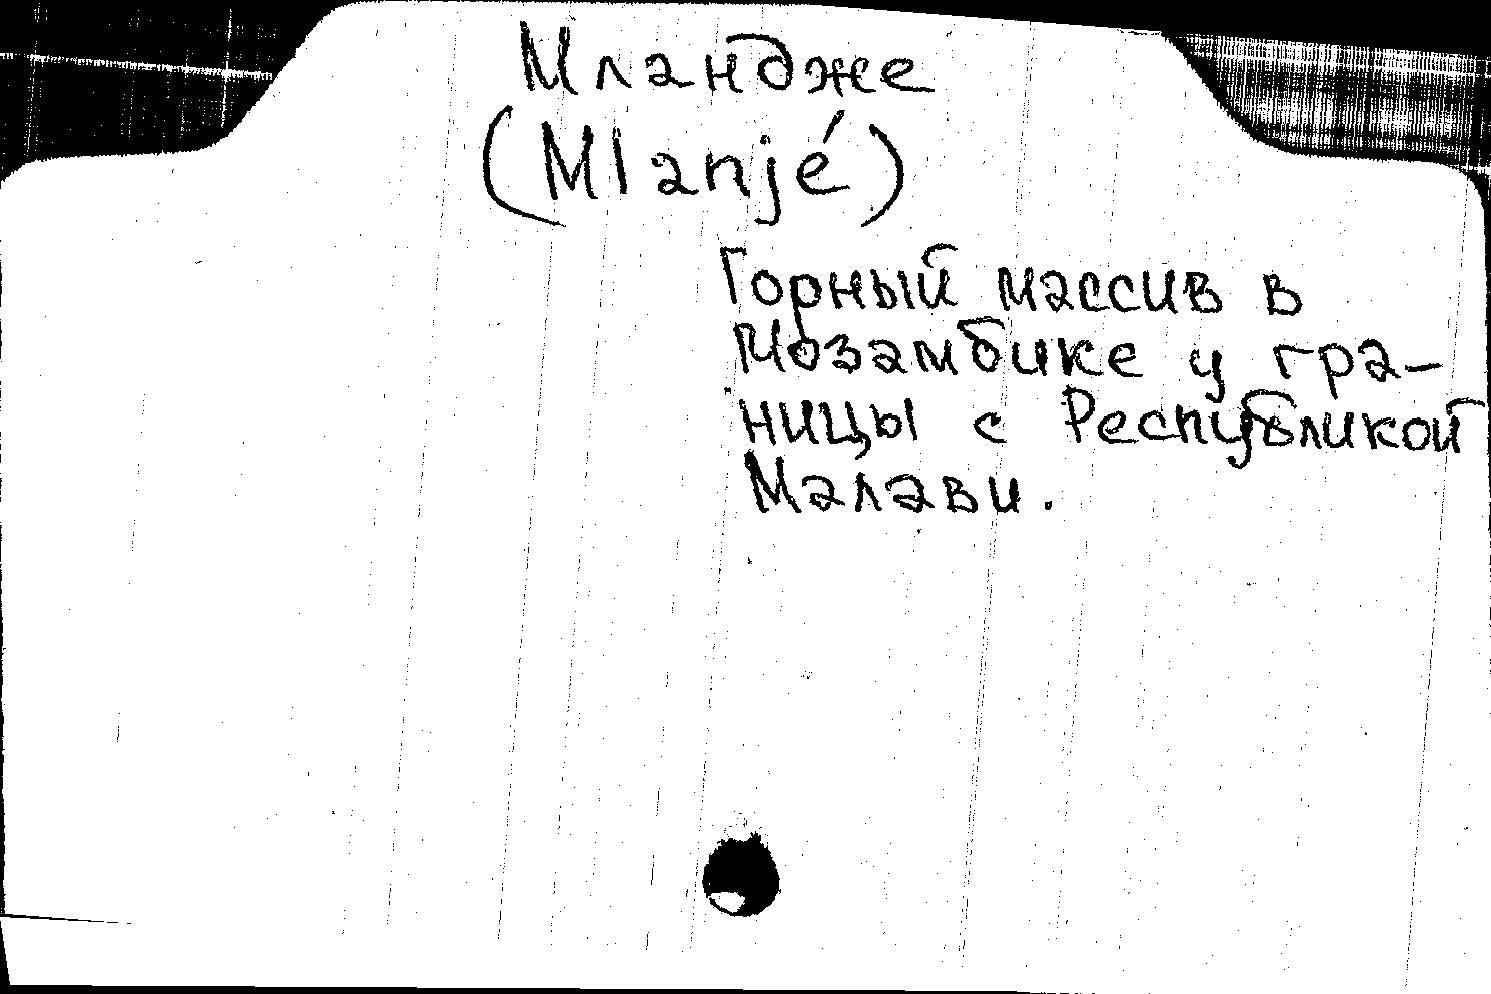 Мландже
(Mlanjé)
Горный массив в
Мозамбике у гра-
ницы с Республикой
Малави.